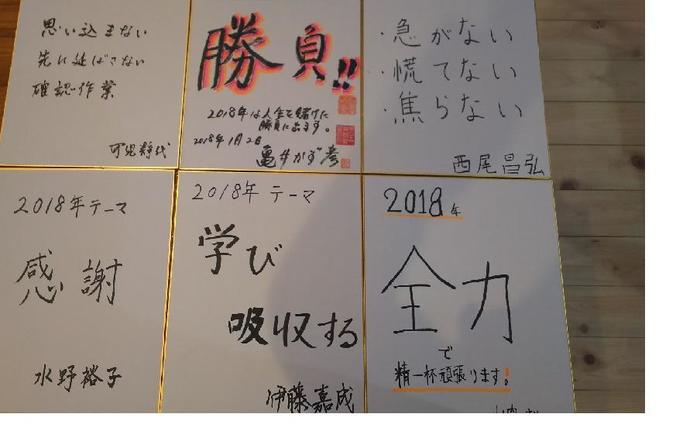 思い込まない
先に延ばさない
確認作業
可児静代
勝負!!
2018年は人生を賭けた
勝負に出ます。
2018年1月2日
亀井かず彦
・急がない
・慌てない
・焦らない
西尾昌弘
2018年テーマ
感謝
水野裕子
2018年 テーマ
学び
吸収する
伊藤嘉成
2018年
全力
で
精一杯頑張ります!